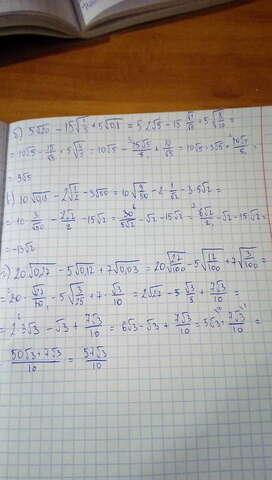 б) 5√20 - 15√1/5 + 5√0,8 = 5·2√5 - 15·√1/√5 + 5√8/10 =
= 10√5 - 15/√5 + 5√4/5 = 10√5 - 15√5/5 + 10/√5 = 10√5 - 3√5 + 10√5/5 =
= 3√5
10√0,18 - 2√1/2 - 3√50 = 10√9/50 - 2·1/√2 - 3·5√2 =
= 10·3/√50 - 2√2/2 - 15√2 = 30/5√2 - √2 - 15√2 = 6√2/2 - √2 - 15√2 =
= -13√2
20√0,27 - 5√0,12 + 7√0,03 = 20√27/100 - 5√12/100 + 7√3/100 =
= 20·√27/10 - 5√3/25 + 7·√3/10 = 2√27 - 5√3/5 + 7√3/10 =
= 2·3√3 - √3 + 7√3/10 = 6√3 - √3 + 7√3/10 = 5√3 + 7√3/10 =
50√3+7√3/10 = 57√3/10